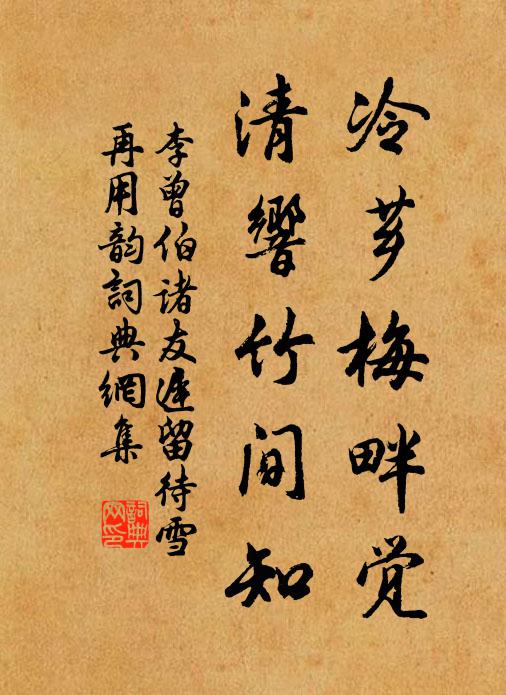 冷芗梅畔觉
清響竹间知
李曾伯诸友遲留待雪
再用韵詞典網集
詞典
网印